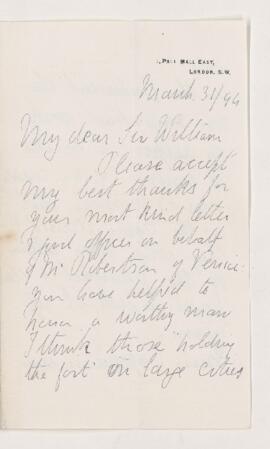 , PALL MALL EAST,
LONDON, S.W.
March 31/94
My dear Sir William
Please accept
my best thanks for
your most kind letter
& good offices on behalf
of Mr Robertson of Venice.
You have helped to
honor a worthy man
I think those "holding
the fort" in large cities